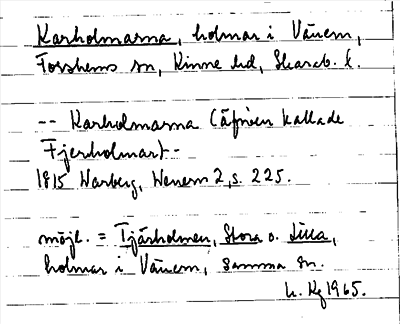 Karholmarna, holmar i Vänern,
Forshems sn, Kinne hd, Skarab. l.
-- Karholmarna (äfven kallade
Fjerholmar) --
1815 Warberg, Wenern 2, s. 225.
möjl. = Tjärholmen, Stora o. Lilla,
holmar i Vänern, samma sn.
1965.